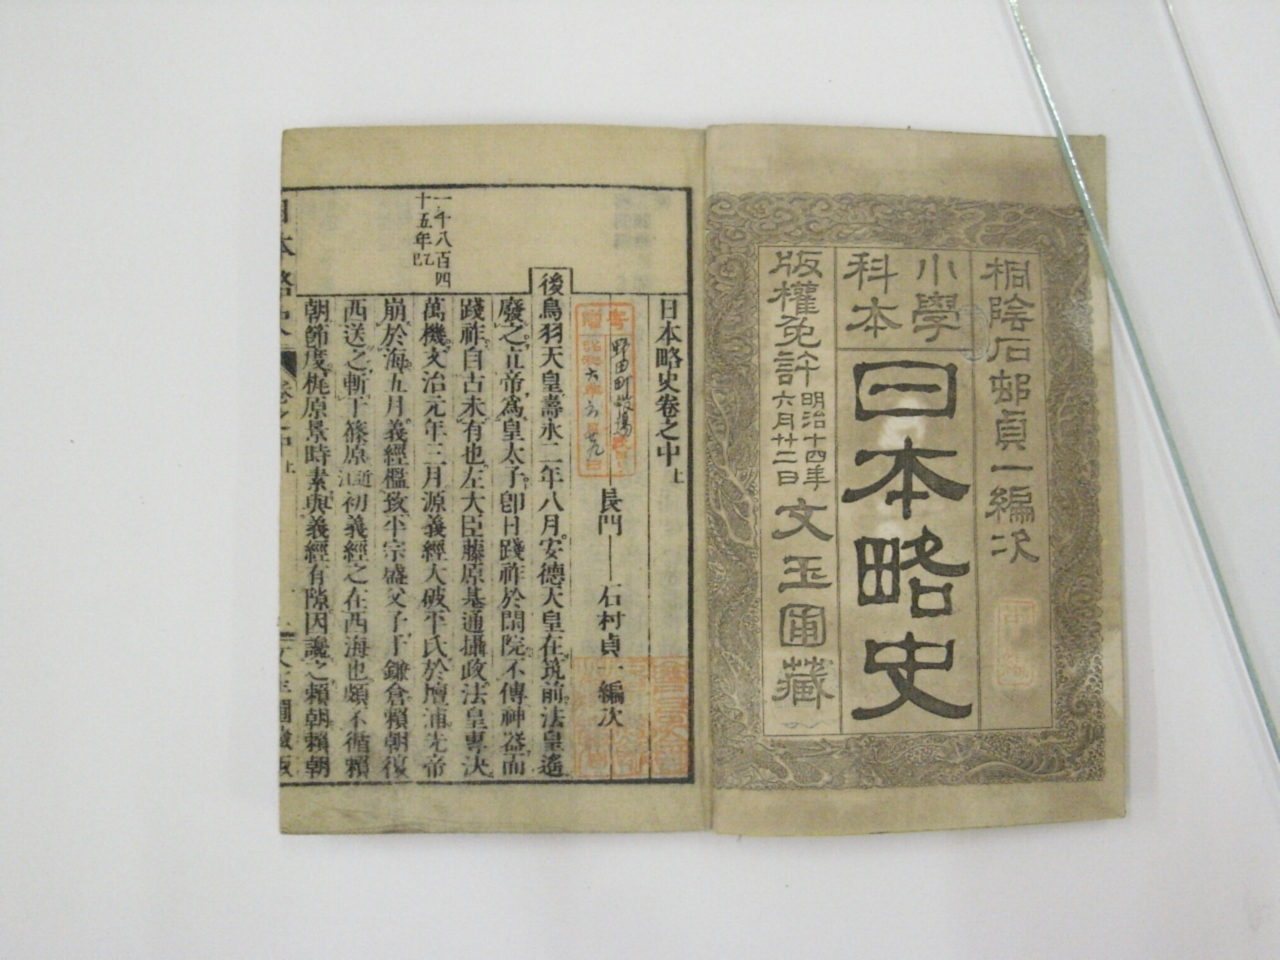 桐陰石邨貞一編次
小學
科本
日本略史
版權免許
明治十四年
六月廿二日
文玉圃藏
日本略史卷之中上
長門
石村貞一編次
後鳥羽天皇壽永二年八月安德天皇在筑前法皇遙
廢之立帝爲皇太子卽日踐祚於閑院不傳神器而
踐祚自古未有也左大臣藤原基通攝政法皇專決
一千八百四
十五年乙巳
萬機文治元年三月源義經大破平氏於壇浦先帝
崩於海五月義經檻致平宗盛父子于鎌倉賴朝復
西送之斬于篠原近江初義經之在西海也頗不循賴
朝節度梶原景時素與義經有隙因讒之賴朝賴朝
日本略史
卷之中上
文玉圃藏版